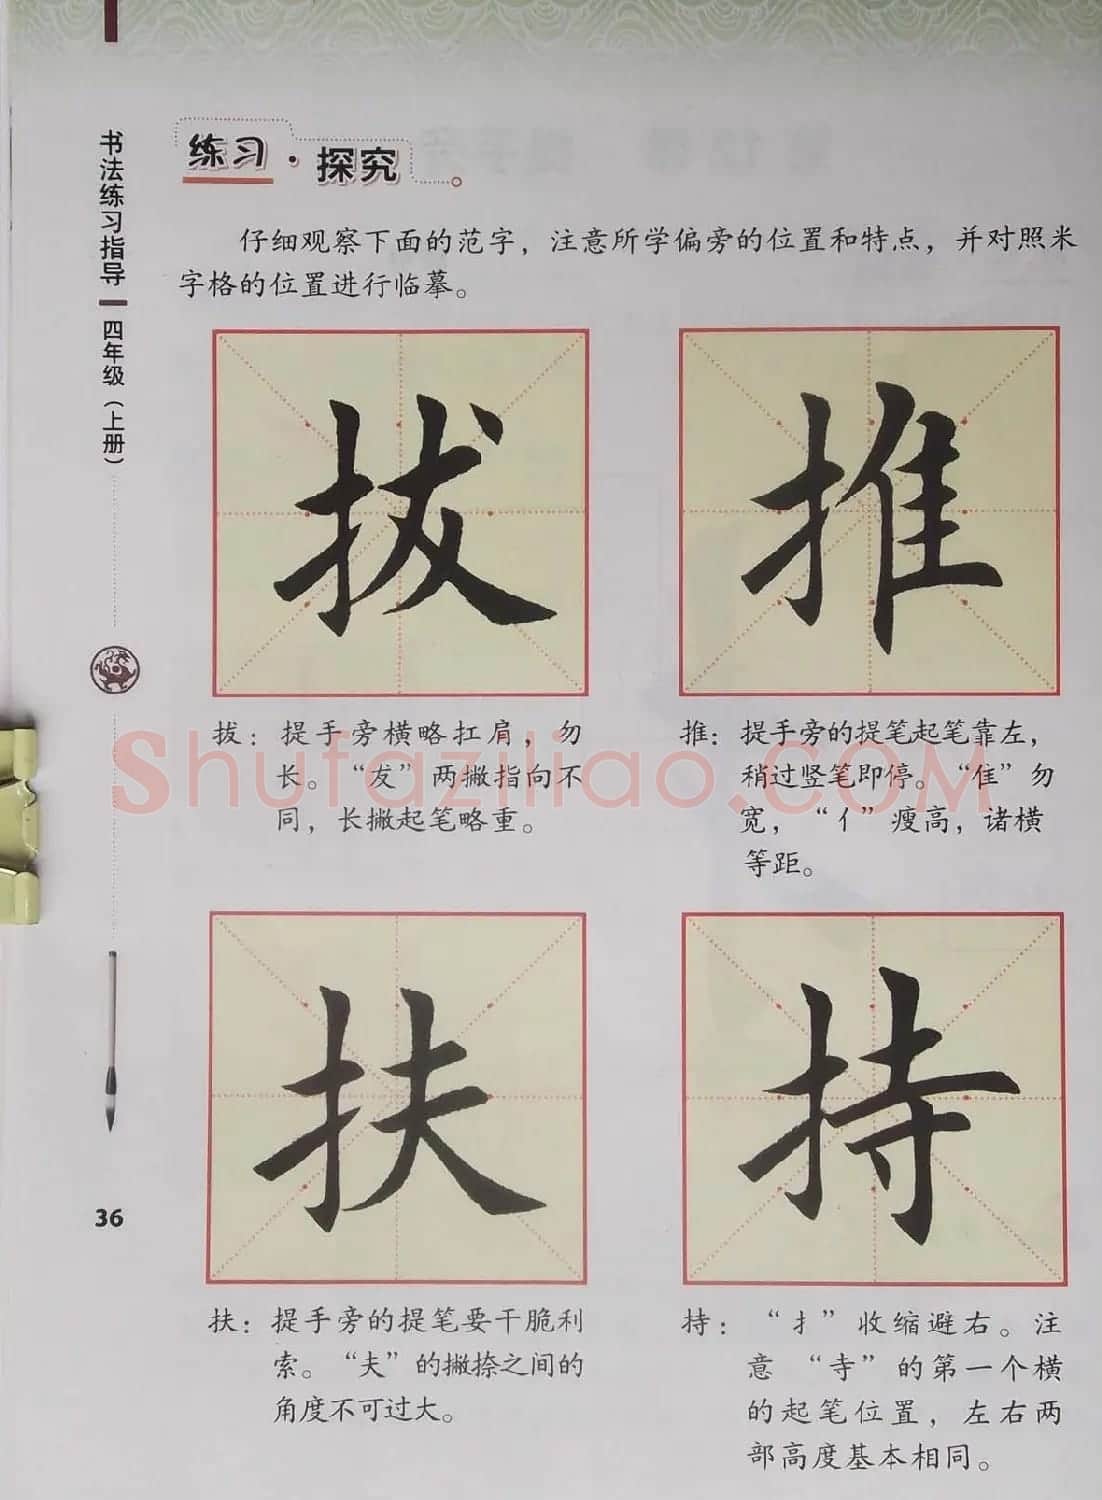 书法练习指导
四年级（上册）
36
练习·探究
仔细观察下面的范字，注意所学偏旁的位置和特点，并对照米
字格的位置进行临摹。
拔
推
拔：提手旁横略扛肩，勿
长。“犮”两撇指向不
同，长撇起笔略重。
推：提手旁的提笔起笔靠左，
稍过竖笔即停。“隹”勿
宽，“亻”瘦高，诸横
等距。
扶
持
扶：提手旁的提笔要干脆利
索。“夫”的撇捺之间的
角度不可过大。
持：“扌”收缩避右。注
意“寺”的第一个横
的起笔位置，左右两
部高度基本相同。
Shufaziliao.COM